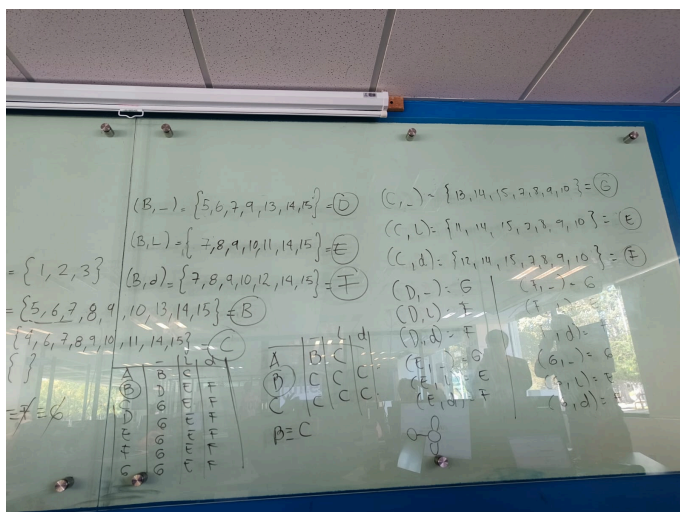 = {1,2,3}
= {5,6,7,8,9,10,13,14,15} = B
{4,6,7,8,9,10,11,14,15} = C
{ }
(B,-) = {5,6,7,9,13,14,15} = D
(B,L) = {7,8,9,10,11,14,15} = E
(B,d) = {7,8,9,10,12,14,15} = F
- L d
A B C
B D E F
C G E F
D G E F
E G E F
F G E F
G G E F
- L d
A B C
B C C C
C C C C
B ≡ C
(C,-) = {13,14,15,7,8,9,10} = G
(C,L) = {11,14,15,7,8,9,10} = E
(C,d) = {12,14,15,7,8,9,10} = F
(D,-) = G
(D,d) = F
(E,-) = G
(E,L) = E
(E,d) = F
(F,-) = G
(G,-) = G